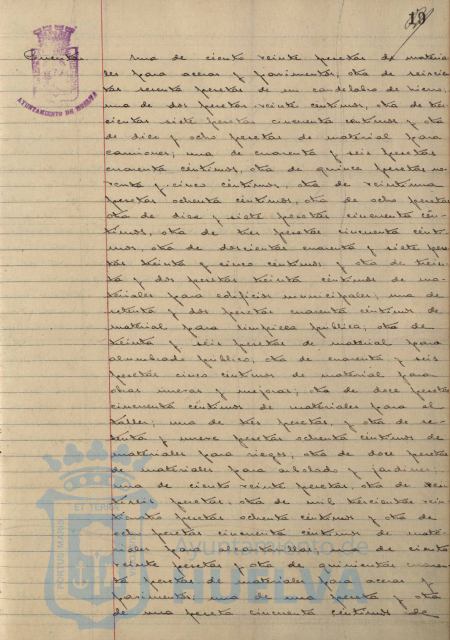 19
AYUNTAMIENTO DE HUELVA
Cuentas
Una de ciento veinte pesetas de materia
les para aceras y pavimentos, otra de seiscien
tas setenta pesetas de un candelabro de hierro,
una de dos pesetas veinte céntimos, otra de tres
cientas siete pesetas cincuenta céntimos y otra
de diez y ocho pesetas de material para
camiones; una de cuarenta y seis pesetas
cuarenta céntimos, otra de quince pesetas no
venta y cinco céntimos, otra de veintiuna
pesetas ochenta céntimos, otra de ocho pesetas
otra de diez y siete pesetas cincuenta cén
timos, otra de tres pesetas cincuenta cénti
mos, otra de doscientas cuarenta y siete pese
tas treinta y cinco céntimos y otra de trein
ta y dos pesetas treinta céntimos de ma
teriales para edificios municipales; una de
setenta y dos pesetas cuarenta céntimos de
material para limpieza pública; otra de
treinta y seis pesetas de material para
alumbrado público; otra de cuarenta y seis
pesetas cinco céntimos de material para
obras nuevas y mejoras; otra de doce pesetas
cincuenta céntimos de materiales para el
taller; una de tres pesetas, y otra de se
senta y nueve pesetas ochenta céntimos de
materiales para riegos, otra de doce pesetas
de materiales para arbolado y jardines;
una de ciento veinte pesetas, otra de
pesetas, otra de mil trescientas
pesetas ochenta céntimos y otra de
pesetas cincuenta céntimos de mate
riales para alcantarillas; una de ciento
veinte pesetas y otra de quinientas cuaren
ta pesetas de materiales para aceras y
pavimentos; una de una peseta y otra
de una peseta cincuenta céntimos de
ET TERRAE
PORTUS MARIS
Ayuntamiento de
HUELVA